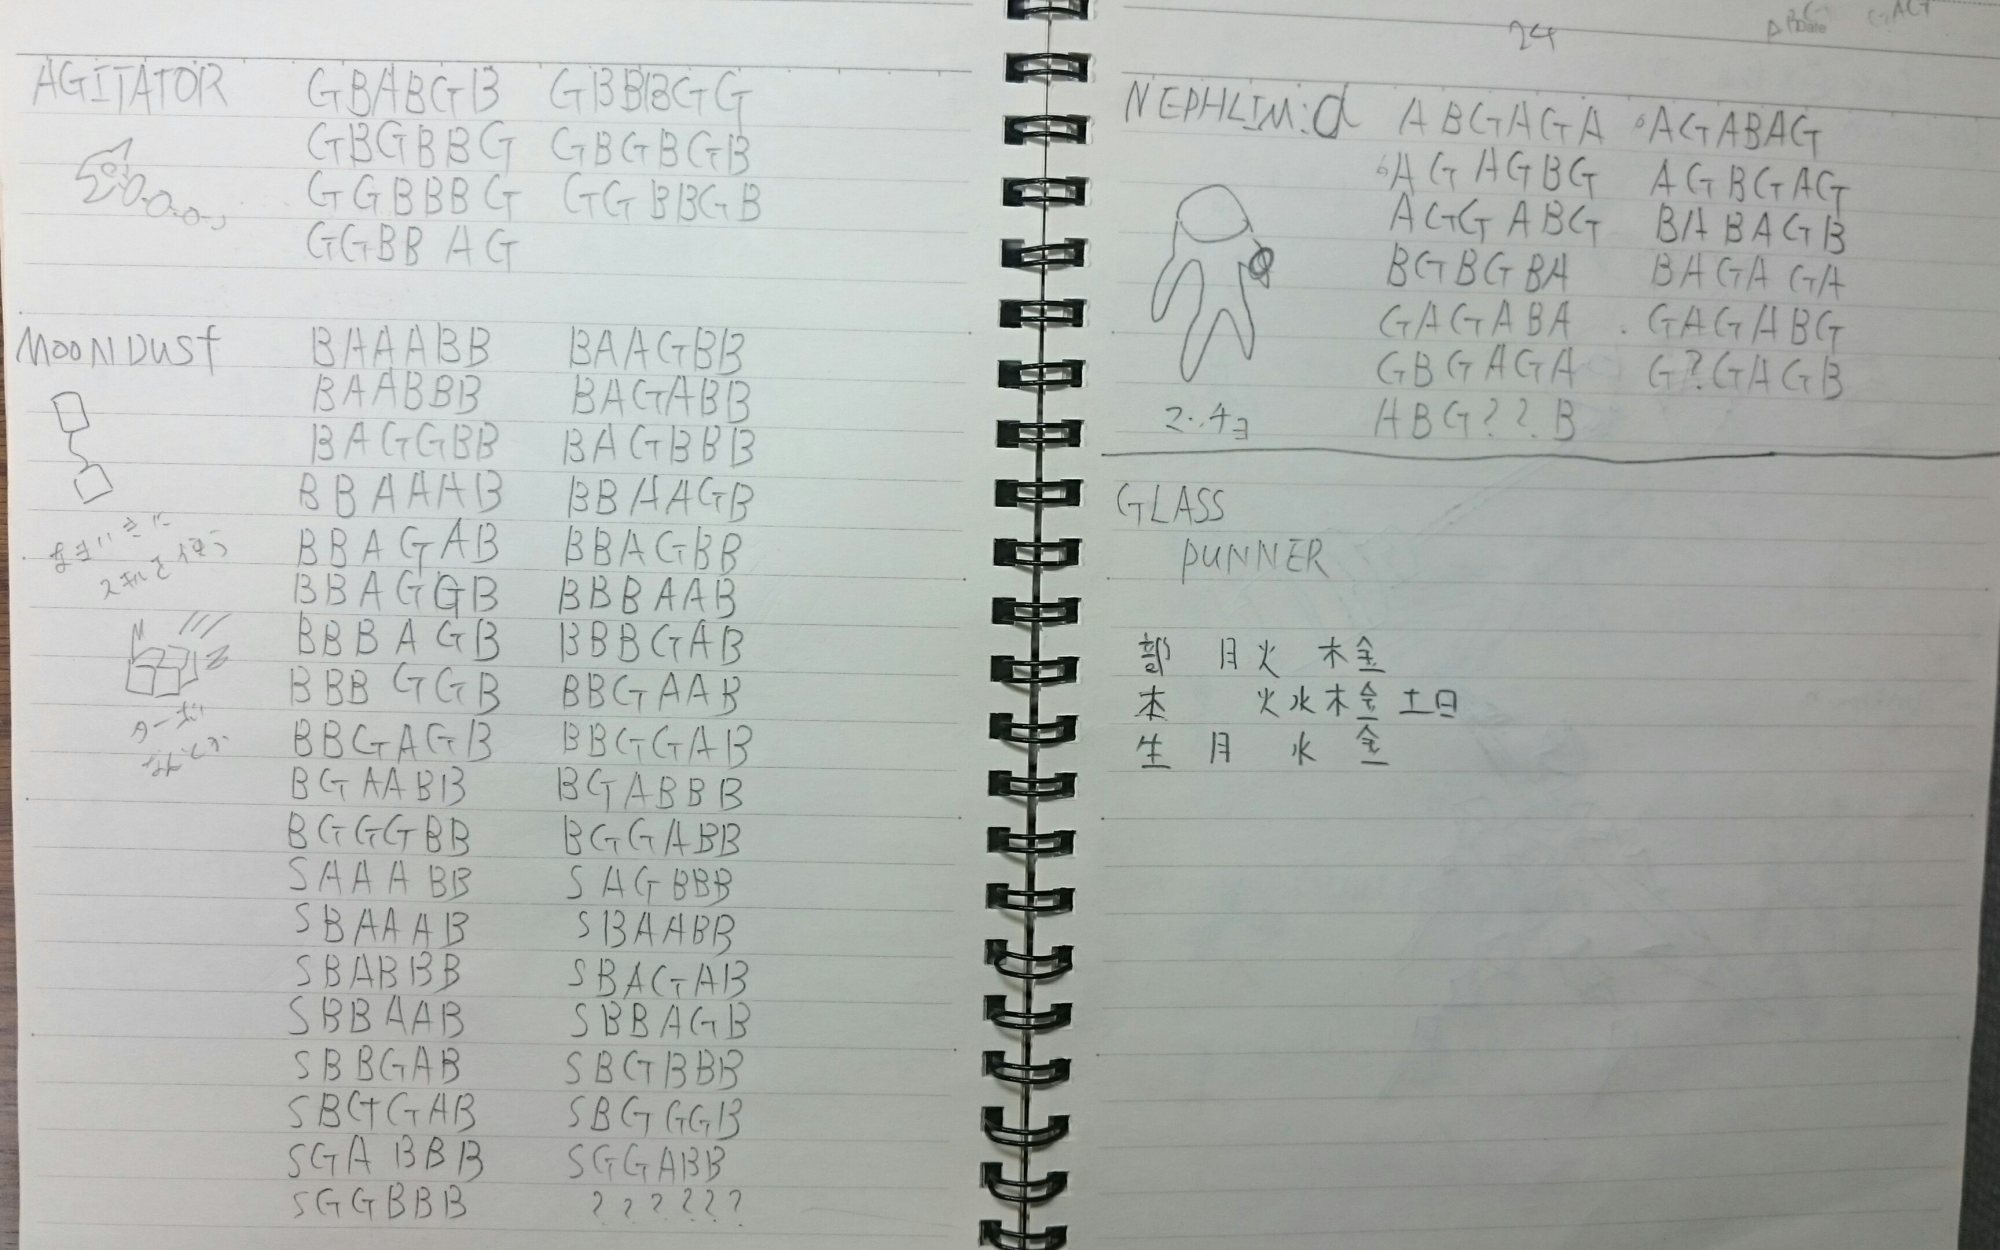 AGITATOR GBABGB GBBBGG
GBGBBG GBGBGB
GGBBBG GGBBGB
GGBBAG
MOONDUST BAAABB BAAGBB
BAABBB BAGABB
BAGGBB BAGBBB
BBAAAB BBAAGB
BBAGAB BBAGBB
BBAGGB BBBAAB
BBBAGB BBBGAB
BBBGGB BBGAAB
BBGAGB BBGGAB
BGAABB BGABBB
BGGGBB BGGABB
SAAABB SAGBBB
SBAAAB SBAABB
SBABBB SBAGAB
SBBAAB SBBAGB
SBBGAB SBGBBB
SBGGAB SBGGGB
SGABBB SGGABB
SGGBBB ??????
ターボ
24
NEPHLIM:α ABGAGA AGABAG
AGAGBG AGBGAG
AGGABG BABAGB
BGBGBA BAGAGA
GAGABA GAGABG
GBGAGA G?GAGB
ABG??B
GLASS
PUNNER
部 月火 木金
本 火水木金土日
生 月 水 金